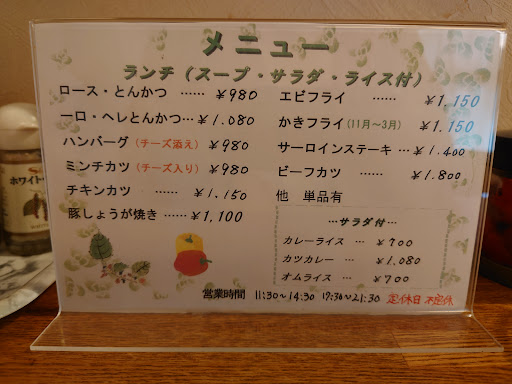 メニュー
ランチ（スープ・サラダ・ライス付）
ロース・とんかつ … ￥980
一口・ヘレとんかつ… ￥1.080
ハンバーグ（チーズ添え） ￥980
ミンチカツ（チーズ入り） ￥980
チキンカツ …… ￥1.150
豚しょうが焼き …… ￥1,100
エビフライ …… ￥1.150
かきフライ(11月～3月) ￥1.150
サーロインステーキ … ￥1.400
ビーフカツ …… ￥1.800
他 単品有
…サラダ付…
カレーライス … ￥700
カツカレー … ￥1.080
オムライス … ￥700
営業時間 11:30～14:30 17:30～21:30 定休日 不定休
ホワイト